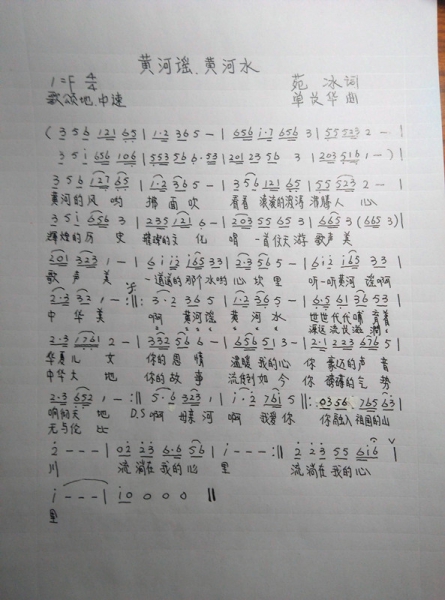 黄河谣、黄河水
1=F 4/4 苑 冰 词
歌颂地、中速 单长华 曲
( 3 5 6 1 2 1 6 5 | 1·2 3 6 5 - | 6 5 6 i·7 6 5 6 3 | 5 5 5 2 3 2 - |
3 5 i 6 5 6 1 0 6 | 5 5 3 5 6 6·5 3 | 2 0 1 2 3 5 6 3 | 2 0 3 5 1 6 1 - ) |
3 5 6 1 2 7 6 5 | 1·2 3 6 5 - | 3 5 6 1 2 1 6 5 | 5 5 5 2 3 2 - |
黄河的风 哟 拂面吹 看着 滚滚的波涛 人心
3 5 i 6 5 6 3 | 2 3 5 1 2 1 6 - | 2 0 3 5 5 6 5 3 | 6 6 5 3 ( 6 6 5 3 ) |
辉煌的历 史 的文 化 唱一首 歌声美
2 0 1 3 2 3 1 - | 6 i i 2 i 6 5 3 3 | 2·3 5 6 5 - | 6 i 2 i 6 5 3 3 |
歌 声 美 一道道的那个水哟 心坎里 听一听黄河 谣啊
2·3 3 2 1 - :‖: 3·2 3 6 5 | 1·2 3 6 5 - | 6·5 6 1 3 6 5 3 |
中 华 美 啊 黄河谣 黄 河 水 世世代代哺育着
源远流长滋润
2·3 1 7 6 1 2 - | 3 3 2 5 6 6 | 6 5 6 5 1 3 - | 2·1 2 2 3 6 7 6 5 |
华夏儿 女 你的恩 情 温暖我的心 你 的声音
中华大 地 你的故 事 流传到如今 你 的气势
2·3 6 5 2 1 - :‖ 5·6 3 2 3 1 | i·2 7 6 1 5 ‖: 0 3 5 6 7 6 5 6 3 |
响彻天 地 D.S 啊 母亲河 啊 我爱你 你融入祖国的山
无与伦比
2 - - - | 0 2 2 3 6·6 5 6 | i - - - :‖ 2·3 2 3 5 5 6 i 6 |
川 流淌在我的心 里 流淌在我的心
i - - - | i 0 0 0 0 ‖
里